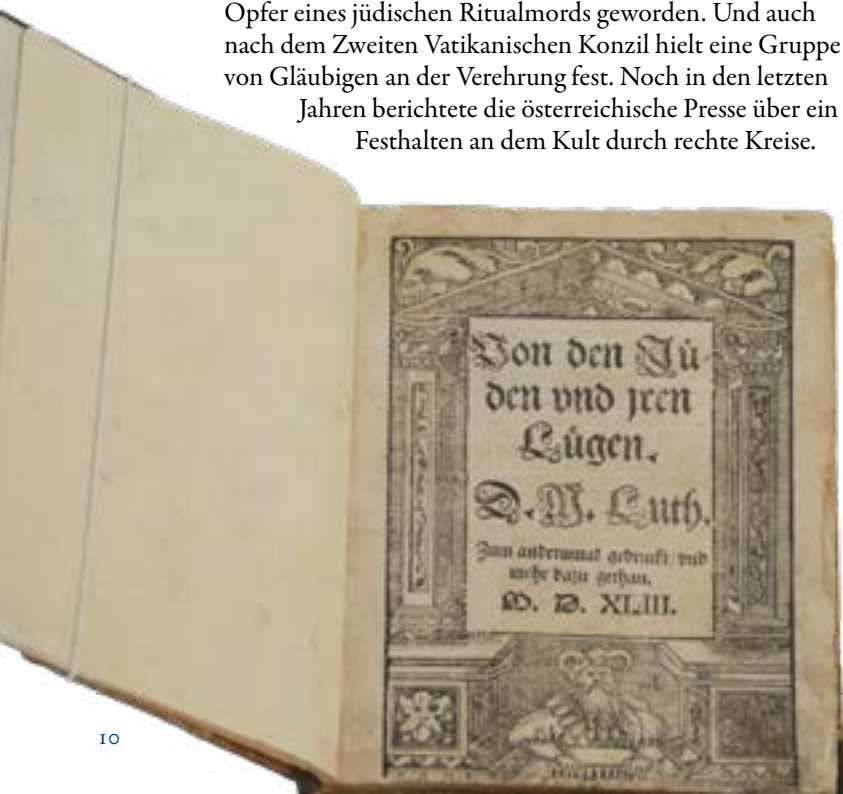 Opfer eines jüdischen Ritualmords geworden. Und auch
nach dem Zweiten Vatikanischen Konzil hielt eine Gruppe
von Gläubigen an der Verehrung fest. Noch in den letzten
Jahren berichtete die österreichische Presse über ein
Festhalten an dem Kult durch rechte Kreise.
Von den Jü-
den vnd jren
Lügen.
D. M. Luth.
Zum andernmal gedruckt vnd
mehr dazu gethan.
M. D. XLIII.
10